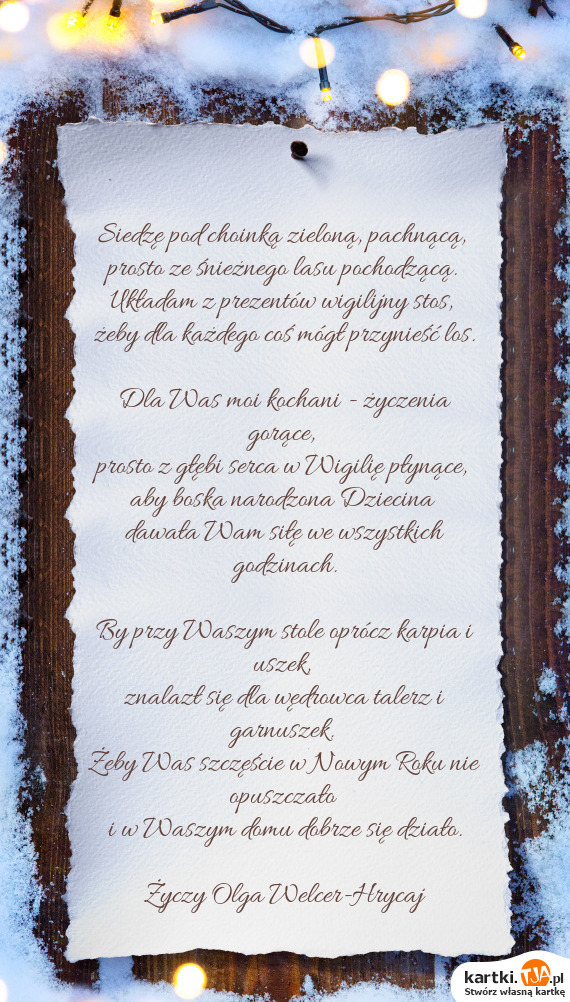 Siedzę pod choinką zieloną, pachnącą,
prosto ze śnieżnego lasu pochodzącą.
Układam z prezentów wigilijny stos,
żeby dla każdego coś mógł przynieść los.
Dla Was moi kochani - życzenia
gorące,
prosto z głębi serca w Wigilię płynące,
aby boska narodzona Dziecina
dawała Wam siłę we wszystkich
godzinach.
By przy Waszym stole oprócz karpia i
uszek,
znalazł się dla wędrowca talerz i
garnuszek.
Żeby Was szczęście w Nowym Roku nie
opuszczało
i w Waszym domu dobrze się działo.
Życzy Olga Welcer-Hrycaj
kartki.TJA.pl
Stwórz własną kartkę